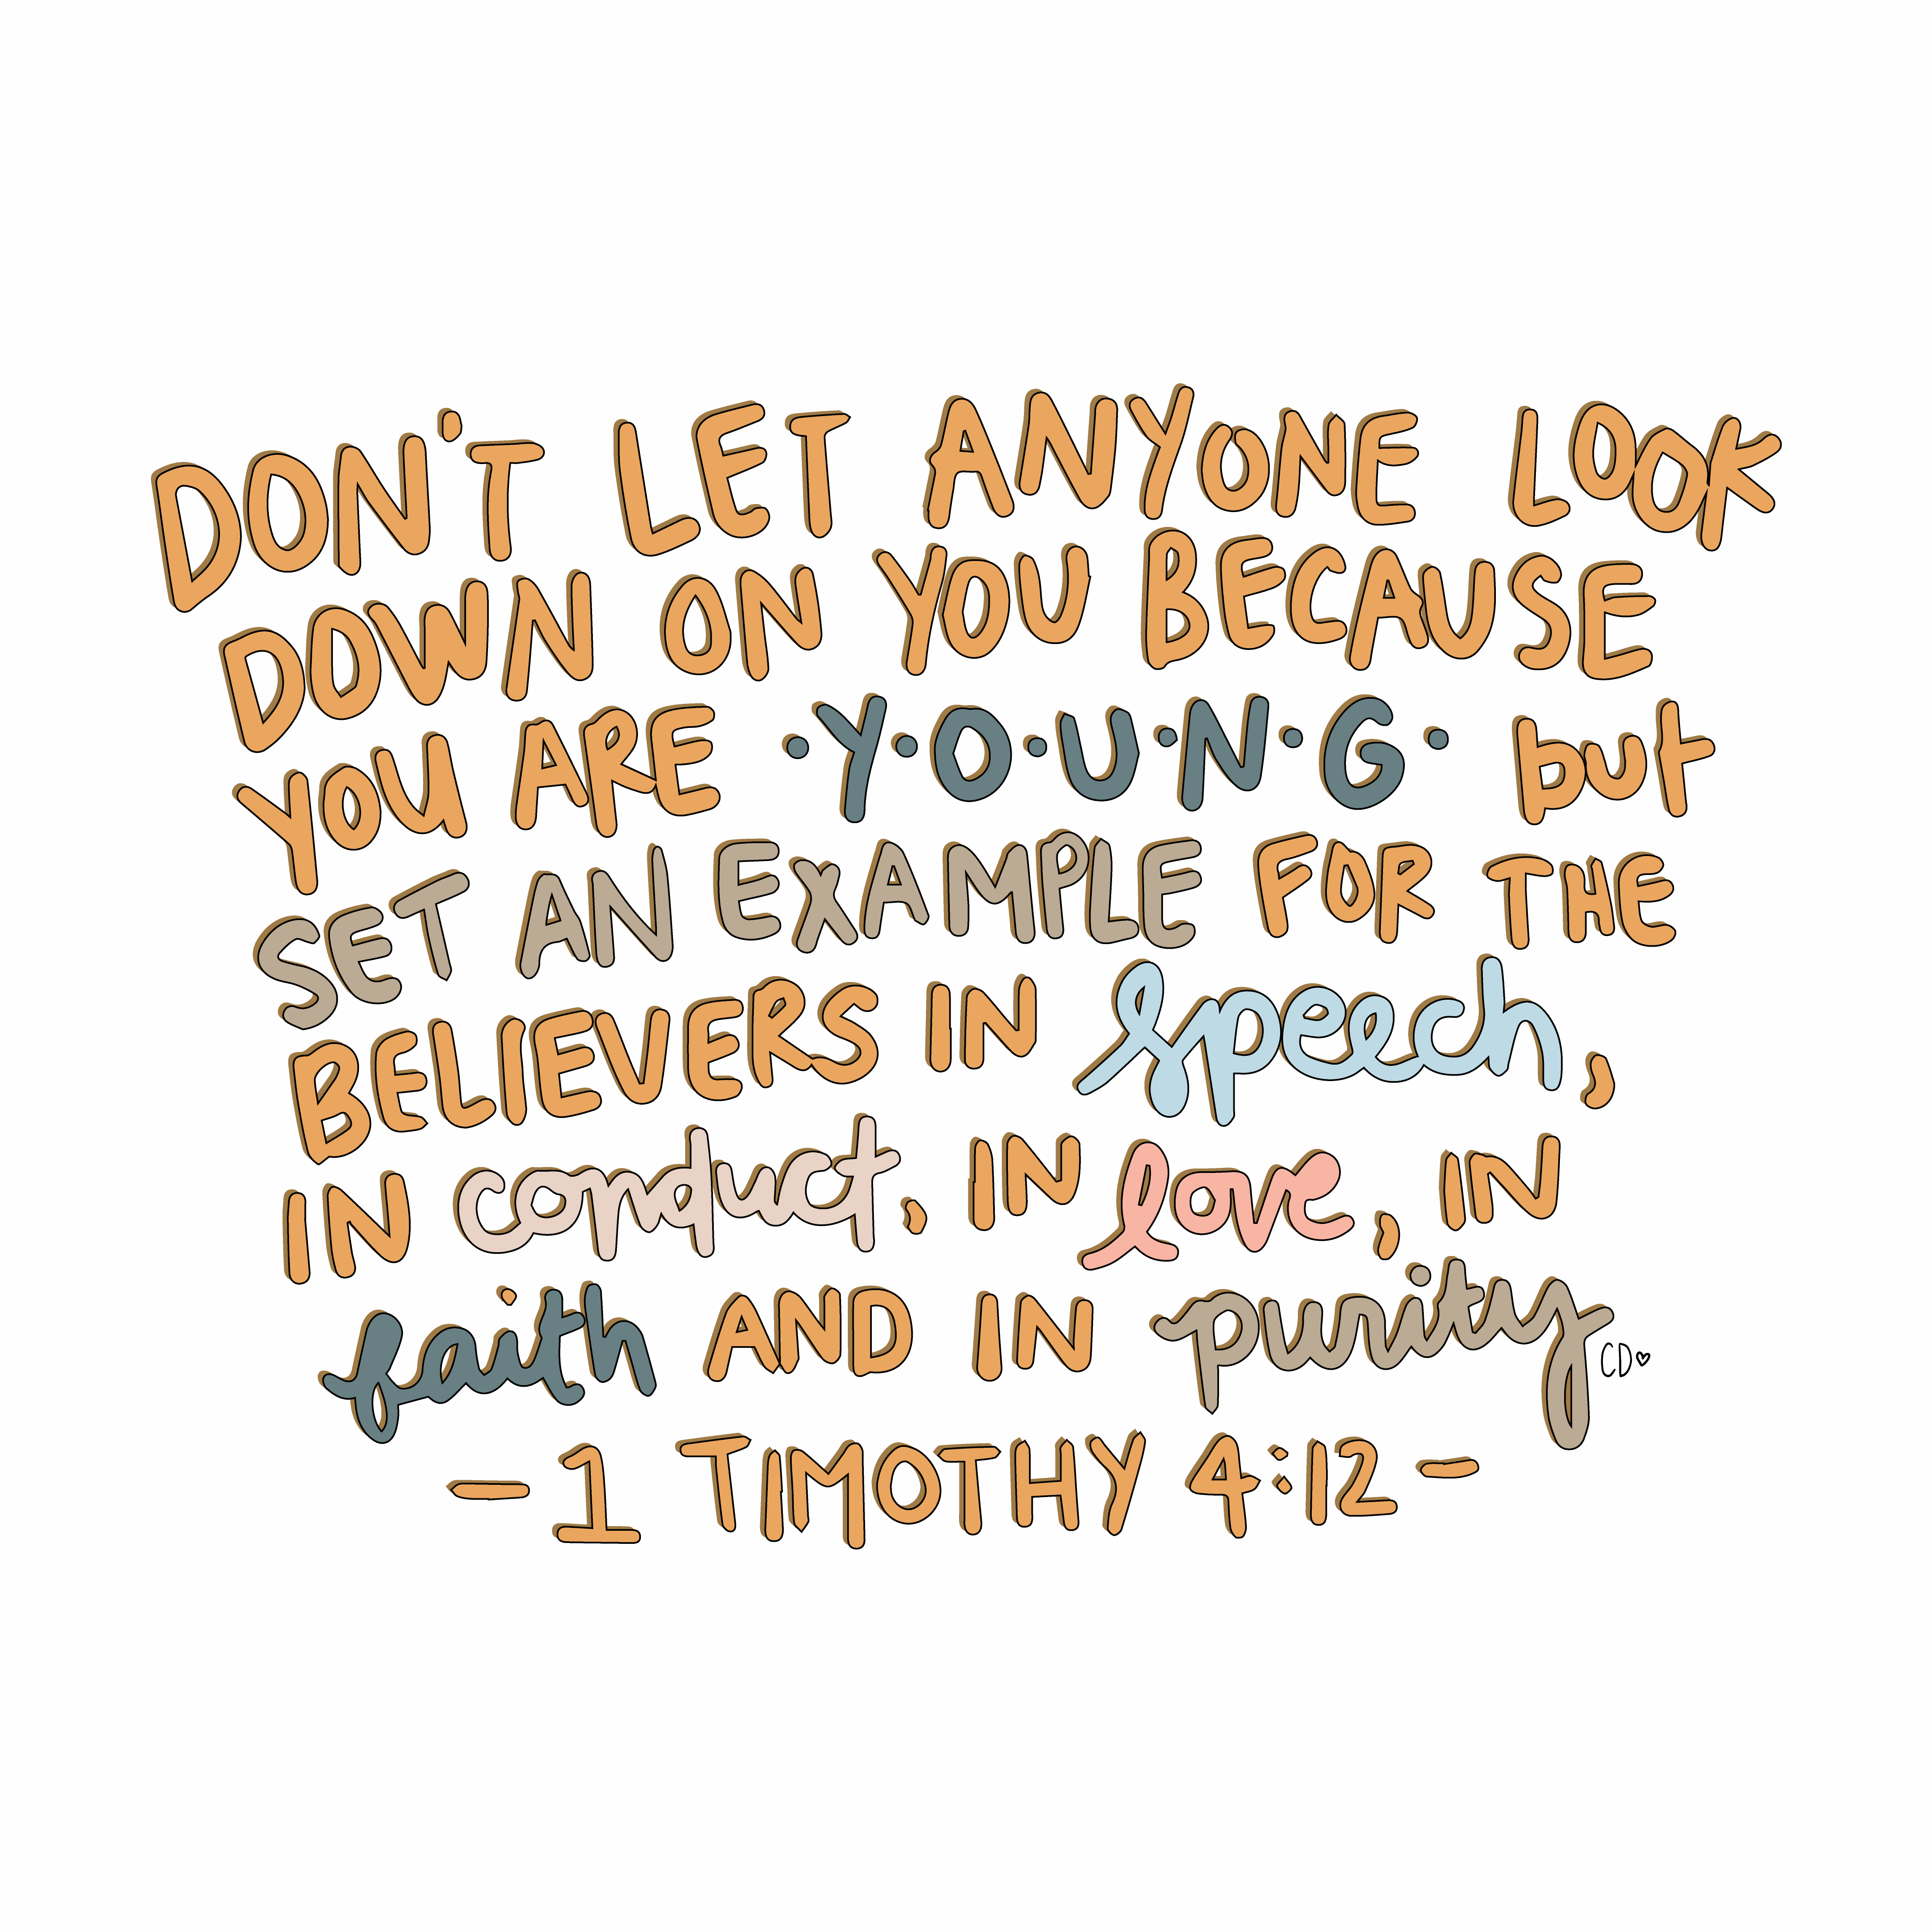 DON'T LET ANYONE LOOK
DOWN ON YOU BECAUSE
YOU ARE ·Y·O·U·N·G· but
SET AN EXAMPLE FOR THE
BELIEVERS IN speech,
IN conduct, IN love, IN
faith AND IN purity
CD♡
—1 TIMOTHY 4:12—